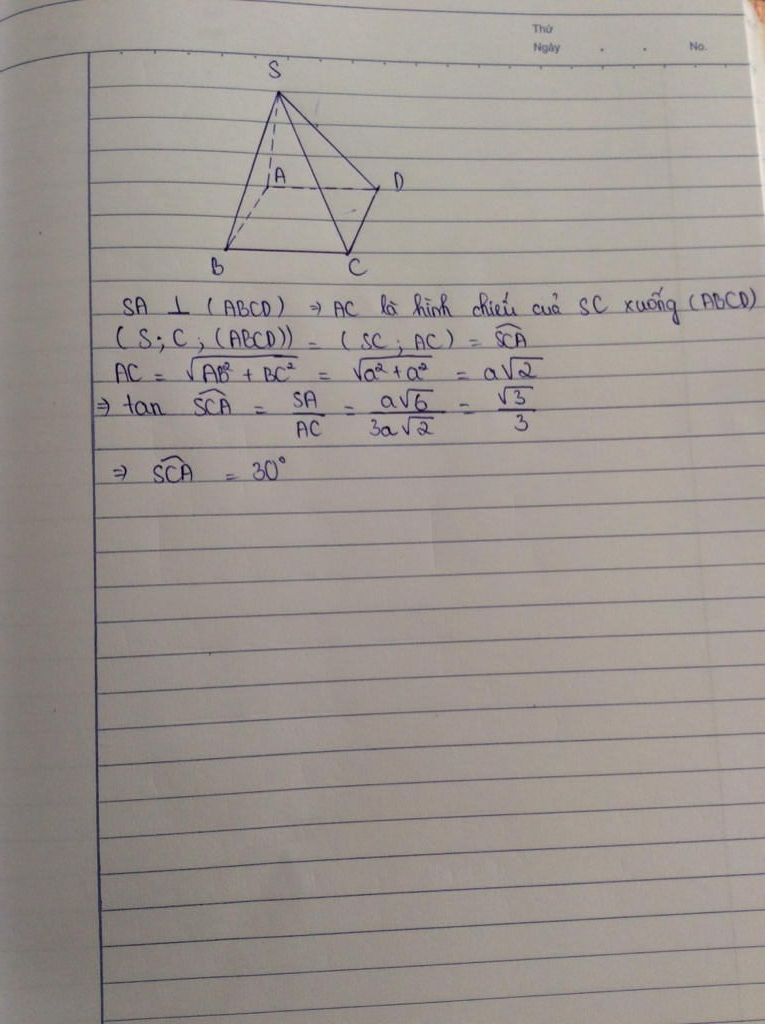 Thứ
Ngày . . No.
S
A
D
B
C
SA ⊥ (ABCD) ⇒ AC là hình chiếu cuả SC xuống (ABCD)
(S;C;(ABCD)) = (SC; AC) = \widehat{SCA}
AC = √(AB² + BC²) = √(a² + a²) = a√2
⇒ tan \widehat{SCA} = SA/AC = a√6/3a√2 = √3/3
⇒ \widehat{SCA} = 30°